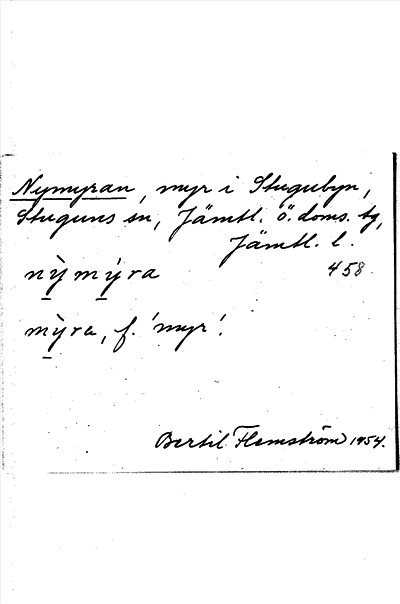 Nymyran, myr i Stugubyn,
Stuguns sn, Jämtl. ö. doms. tg,
Jämtl. l.
nỳmýra 458
mỳra, f. 'myr'.
Bertil Flemström 1954.